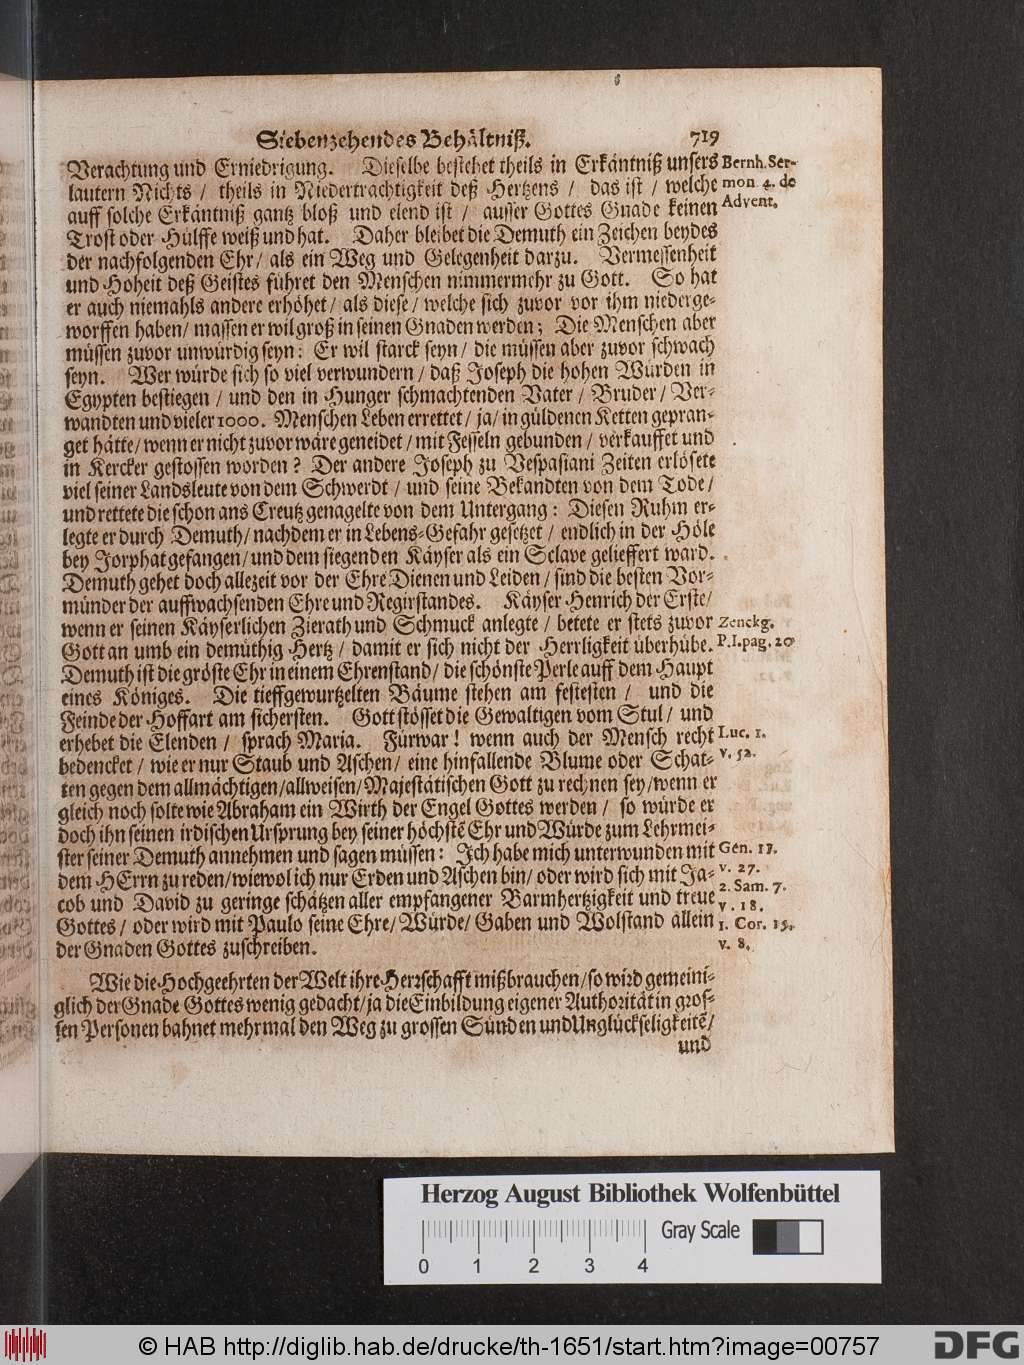 Siebenzehendes Behältniß. 719
Verachtung und Erniedrigung. Dieselbe bestehet theils in Erkäntniß unsers
lautern Nichts / theils in Niederträchtigkeit deß Hertzens / das ist / welche
auff solche Erkäntniß gantz bloß und elend ist / ausser Gottes Gnade keinen
Trost oder Hülffe weiß und hat. Daher bleibet die Demuth ein Zeichen beydes
der nachfolgenden Ehr / als ein Weg und Gelegenheit darzu. Vermessenheit
und Hoheit deß Geistes führet den Menschen nimmermehr zu Gott. So hat
er auch niemahls andere erhöhet / als diese / welche sich zuvor vor ihm niederge-
worffen haben / massen er wil groß in seinen Gnaden werden; Die Menschen aber
müssen zuvor unwürdig seyn: Er wil starck seyn / die müssen aber zuvor schwach
seyn. Wer würde sich so viel verwundern / daß Joseph die hohen Würden in
Egypten bestiegen / und den in Hunger schmachtenden Vater / Bruder / Ver-
wandten und vieler 1000. Menschen Leben errettet / ja / in güldenen Ketten gepran-
get hätte / wenn er nicht zuvor wäre geneidet / mit Fesseln gebunden / verkauffet und
in Kercker gestossen worden? Der andere Joseph zu Vespasiani Zeiten erlösete
viel seiner Landsleute von dem Schwerdt / und seine Bekandten von dem Tode /
und rettete die schon ans Creutz genagelte von dem Untergang: Diesen Ruhm er-
legte er durch Demuth / nachdem er in Lebens-Gefahr gesetzet / endlich in der Höle
bey Jorphat gefangen / und dem siegenden Käyser als ein Sclave gelieffert ward.
Demuth gehet doch allezeit vor der Ehre Dienen und Leiden / sind die besten Vor-
münder der auffwachsenden Ehre und Regirstandes. Käyser Henrich der Erste /
wenn er seinen Käyserlichen Zierath und Schmuck anlegte / betete er stets zuvor
Gott an umb ein demüthig Hertz / damit er sich nicht der Herrligkeit überhübe.
Demuth ist die gröste Ehr in einem Ehrenstand / die schönste Perle auff dem Haupt
eines Königes. Die tieffgewurtzelten Bäume stehen am festesten / und die
Feinde der Hoffart am sichersten. Gott stösset die Gewaltigen vom Stul / und
erhebet die Elenden / sprach Maria. Fürwar! wenn auch der Mensch recht
bedencket / wie er nur Staub und Aschen / eine hinfallende Blume oder Schat-
ten gegen dem allmächtigen / allweisen / Majestätischen Gott zu rechnen sey / wenn er
gleich noch solte wie Abraham ein Wirth der Engel Gottes werden / so würde er
doch ihn seinen irdischen Ursprung bey seiner höchstē Ehr und Würde zum Lehrmei-
ster seiner Demuth annehmen und sagen müssen: Ich habe mich unterwunden mit
dem HErrn zu reden / wiewol ich nur Erden und Aschen bin / oder wird sich mit Ja-
cob und David zu geringe schätzen aller empfangener Barmhertzigkeit und treue
Gottes / oder wird mit Paulo seine Ehre / Würde / Gaben und Wolstand allein
der Gnaden Gottes zuschreiben.
Wie die Hochgeehrten der Welt ihre Herrschafft mißbrauchen / so wird gemeini-
glich der Gnade Gottes wenig gedacht / ja die Einbildung eigener Authorität in gros-
sen Personen bahnet mehrmal den Weg zu grossen Sünden und Unglückseligkeitē /
und
Bernh. Ser-
mon 4. de
Advent.
Zenckg.
P. I. pag. 20
Luc. 1.
v. 52.
Gen. 17.
v. 27.
2. Sam. 7.
v. 18.
1. Cor. 15.
v. 8.
Herzog August Bibliothek Wolfenbüttel
Gray Scale
0 1 2 3 4
© HAB http://diglib.hab.de/drucke/th-1651/start.htm?image=00757
DFG